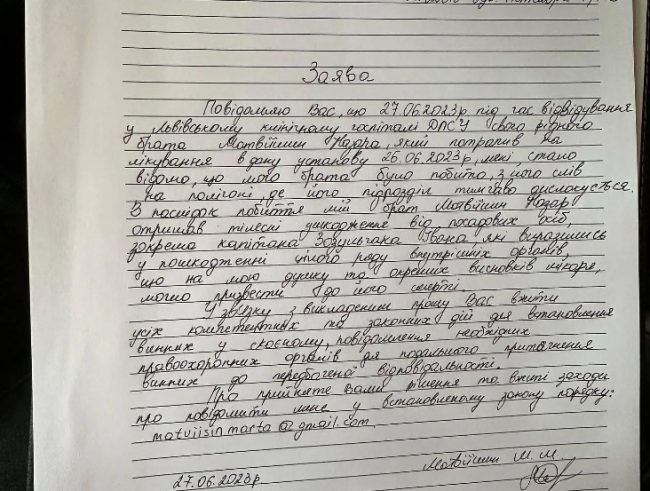 Заява
Повідомляю Вас, що 27.06.2023р під час відвідування
у Львівському клінічному госпіталі ДПСУ свого рідного
брата Матвіїшин Назара, який потрапив на
лікування в дану установу 26.06.2023р, мені стало
відомо, що мого брата було побито, з його слів
на полігоні, де його підрозділ тимчаво дислокується.
В наслідок побиття мій брат Матвіїшин Назар
отримав тілесні ушкодження від посадових осіб,
зокрема капітана Зозульчака Івана, які виразились
у пошкодженні цілого ряду внутрішніх органів,
що на мою думку та окремих висновків лікаря,
могло призвести до його смерті.
У зв'язку з викладеним прошу Вас вжити
усіх компетентних та законних дій для встановлення
винних у скоєному, повідомлення необхідних
правоохоронних органів для подальшого притягнення
винних до передбаченої відповідальності.
Про прийняте Вами рішення та вжиті заходи
про повідомити мене у встановленому закону порядку:
matviisinmarta@gmail.com
Матвіїшин М. М.
27.06.2023р